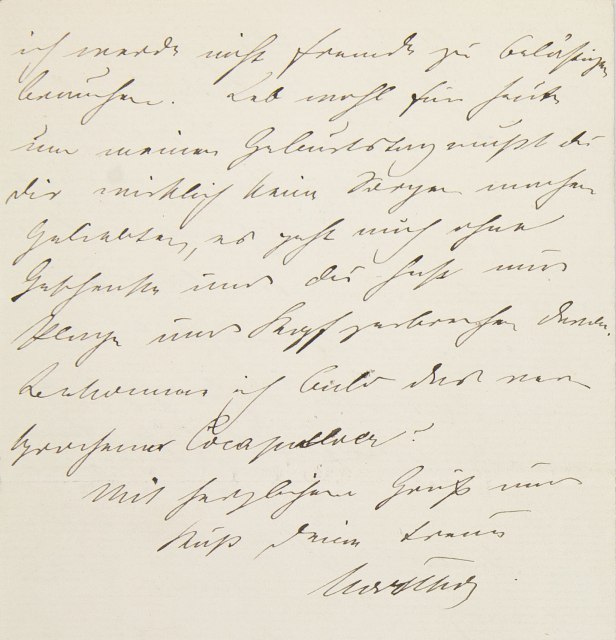 ich werde nicht fremde zu belästigen
brauchen. Leb wohl für heute
um meinen Geburtstag mußt du
dir wirklich keine Sorgen machen
Geliebter, es geht auch ohne
Geschenke und du hast nur
Plage und Kopfzerbrechen davon.
Bekomme ich bald das ver-
sprochene Cocapulver?
Mit herzlichem Gruß und
Kuß deine treue
Martha